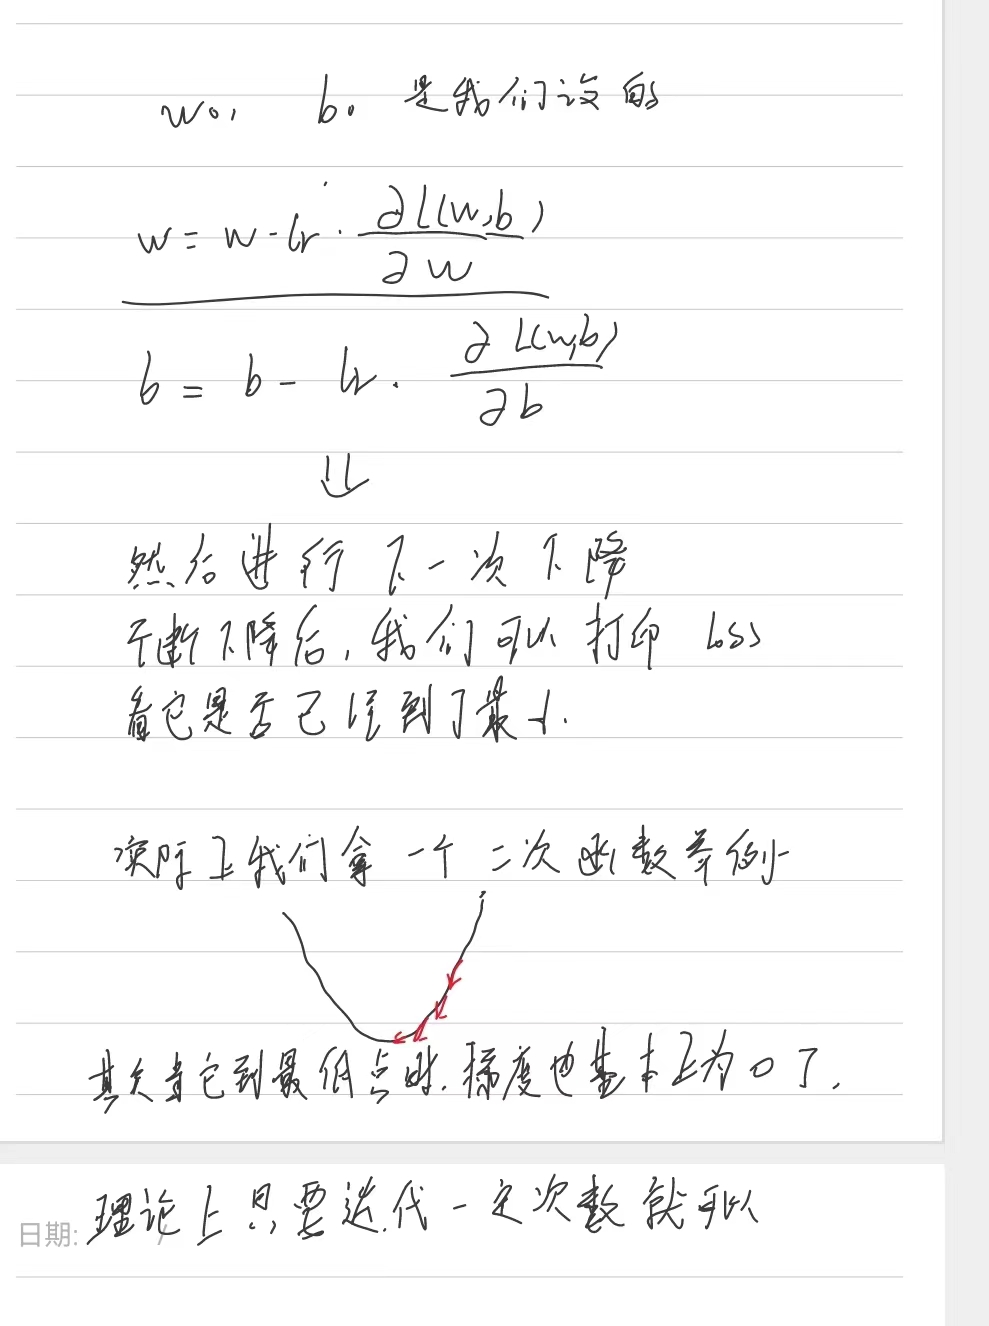 w₀, b₀ 是我们设的
w = w - lr · ∂L(w,b) / ∂w
b = b - lr · ∂L(w,b) / ∂b
⇓
然后进行下一次下降
不断下降后,我们可以打印 loss
看它是否已经到了最小.
实际上我们拿一个二次函数举例
其实当它到最低点时.梯度也基本上为0了.
日期: /
理论上只要迭代一定次数就可以